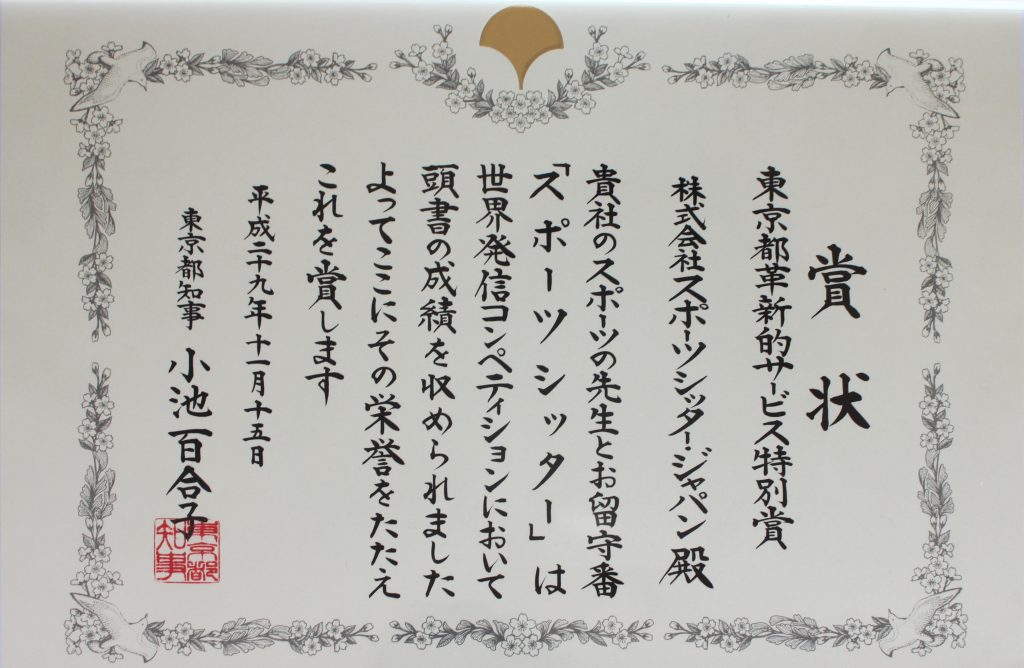 賞状
東京都革新的サービス特別賞
株式会社スポーツシッター・ジャパン 殿
貴社のスポーツの先生とお留守番
「スポーツシッター」は
世界発信コンペティションにおいて
頭書の成績を収められました
よってここにその栄誉をたたえ
これを賞します
平成二十九年十一月十五日
東京都知事 小池百合子
東京都
知事